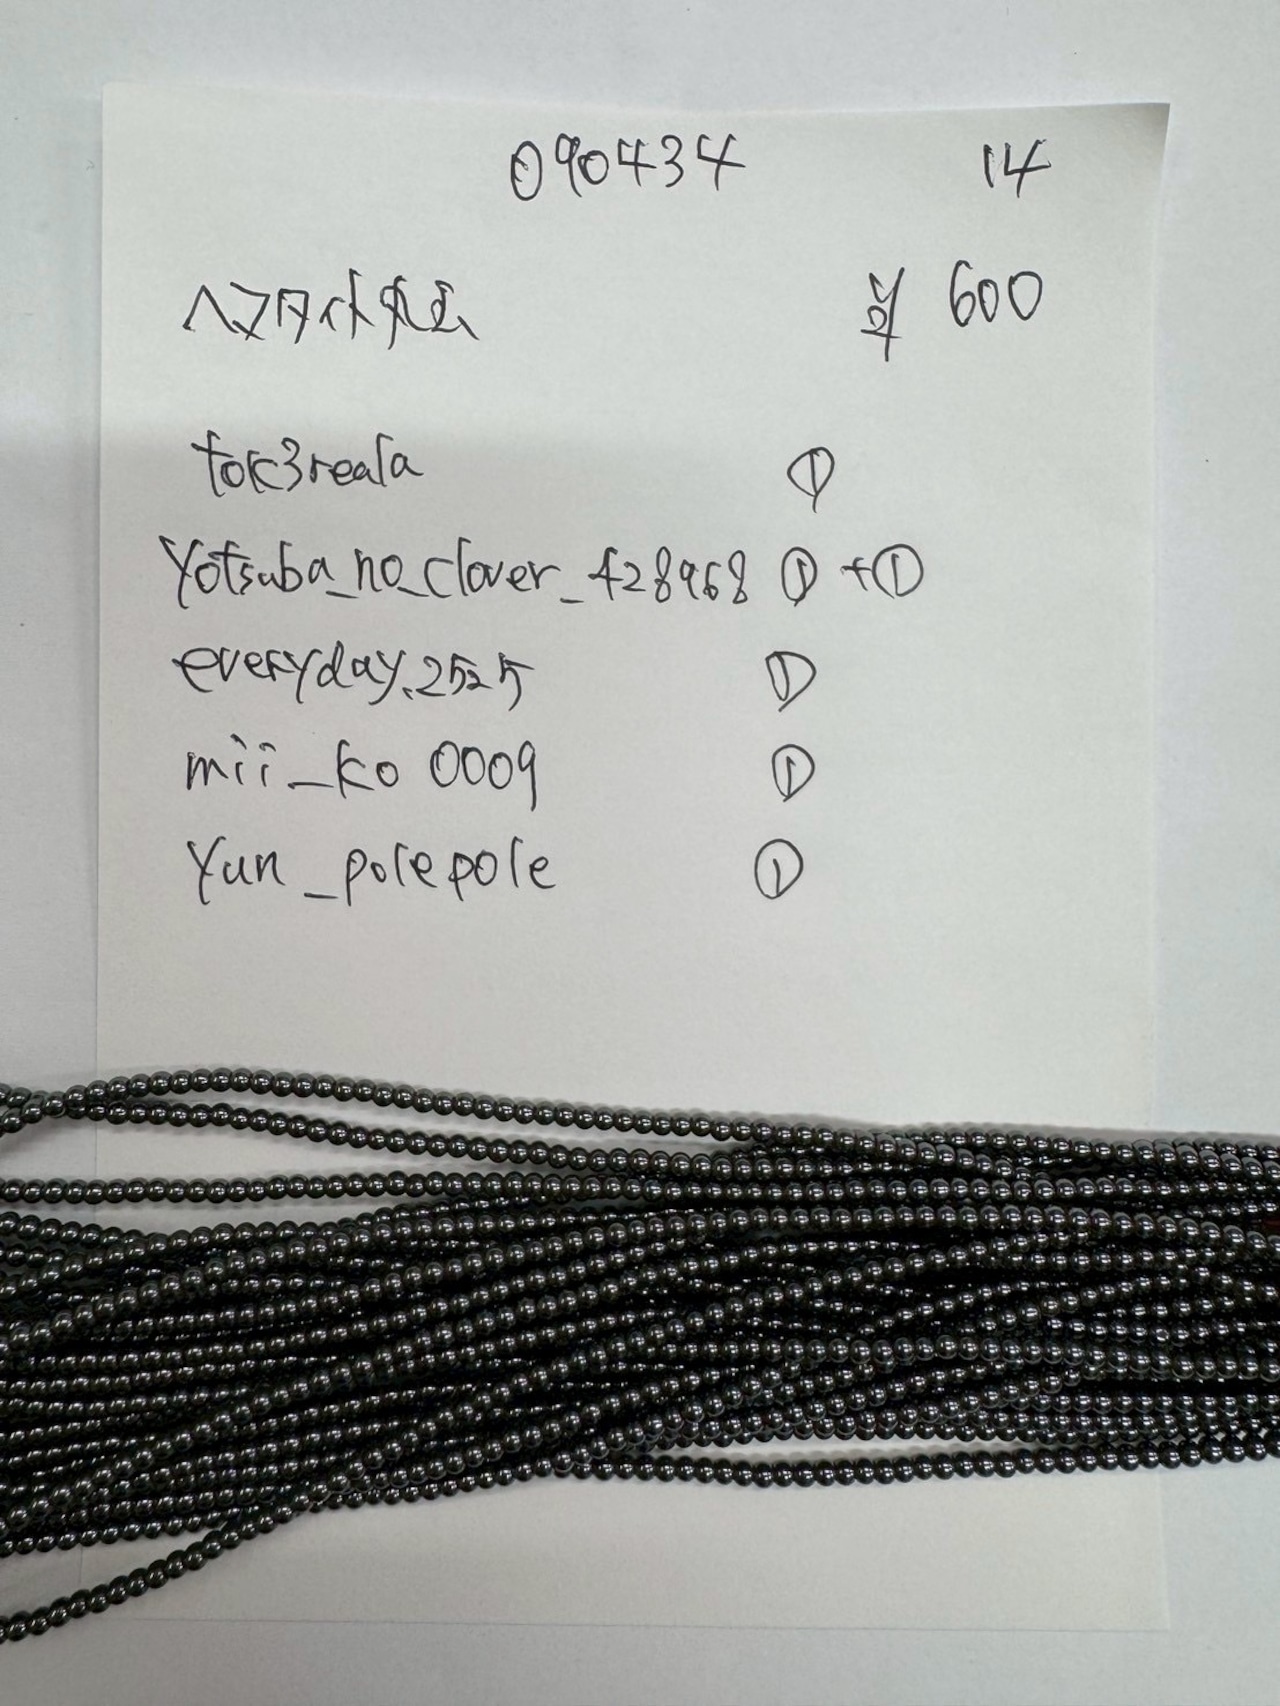 090434 14
ヘマタイト丸玉 ¥ 600
tok3reala ①
Yotsuba_no_clover_428968 ① +①
everyday.2525 ①
mii_ko 0009 ①
Yun_polepole ①